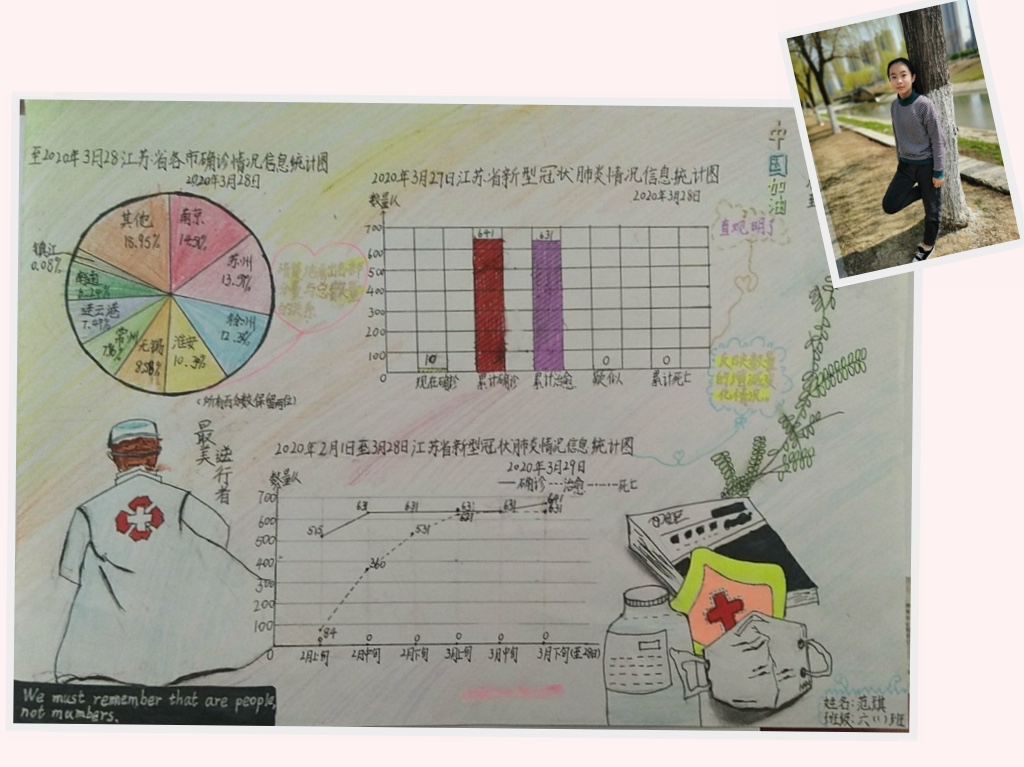 至2020年3月28江苏省各市确诊情况信息统计图
2020年3月28日
其他
18.95%
南京
14.5%
苏州
13.57%
徐州
12.3%
淮安
10.3%
无锡
8.58%
常州
连云港
7.49%
镇江
0.08%
(所有百分数保留两位)
2020年3月27日江苏省新型冠状肺炎情况信息统计图
2020年3月28日
数量/人
700
600
500
400
300
200
100
0
10
641
631
0
0
现在确诊
累计确诊
累计治愈
疑似
累计死亡
中国加油
直观明了
最美逆行者
2020年2月1日至3月28日江苏省新型冠状肺炎情况信息统计图
2020年3月29日
确诊 治愈 死亡
数量/人
700
600
500
400
300
200
100
0
515
631
631
631
631
641
84
360
531
621
631
0
0
0
0
0
2月上旬
2月中旬
2月下旬
3月上旬
3月中旬
3月下旬(至28日)
We must remember that are people,
not mumbers.
姓名:范琪
班级:六(1)班